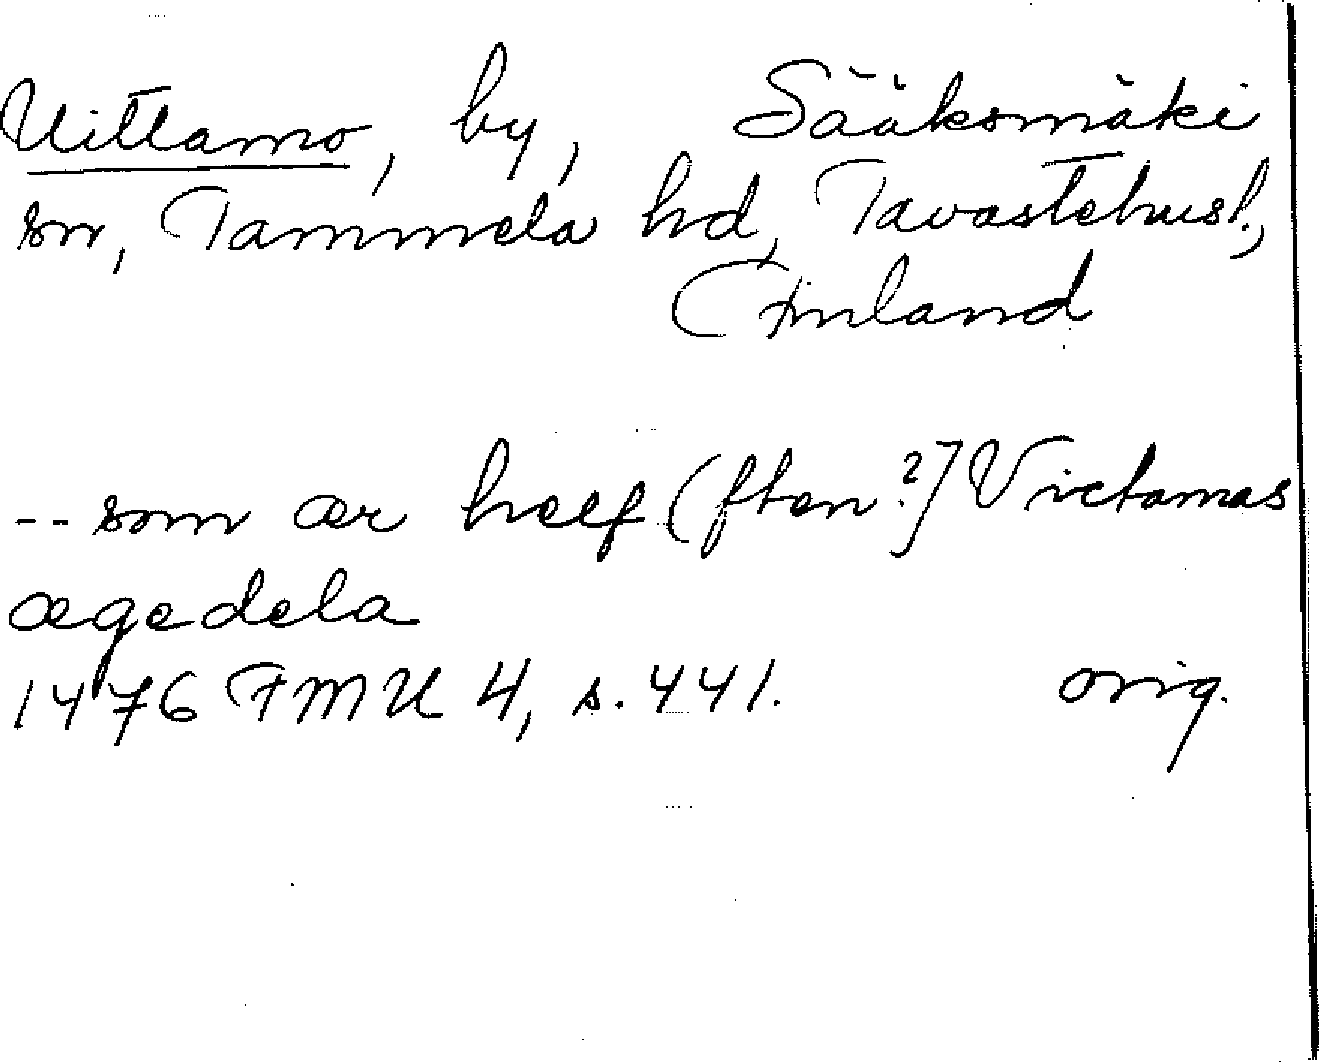 Uittamo, by, Sääksmäki
sn, Tammela hd, Tavastehusl.,
Finland
-- som ær heelf (ften?] Victamas
ægedela
1476 FMU 4, s. 441. orig.